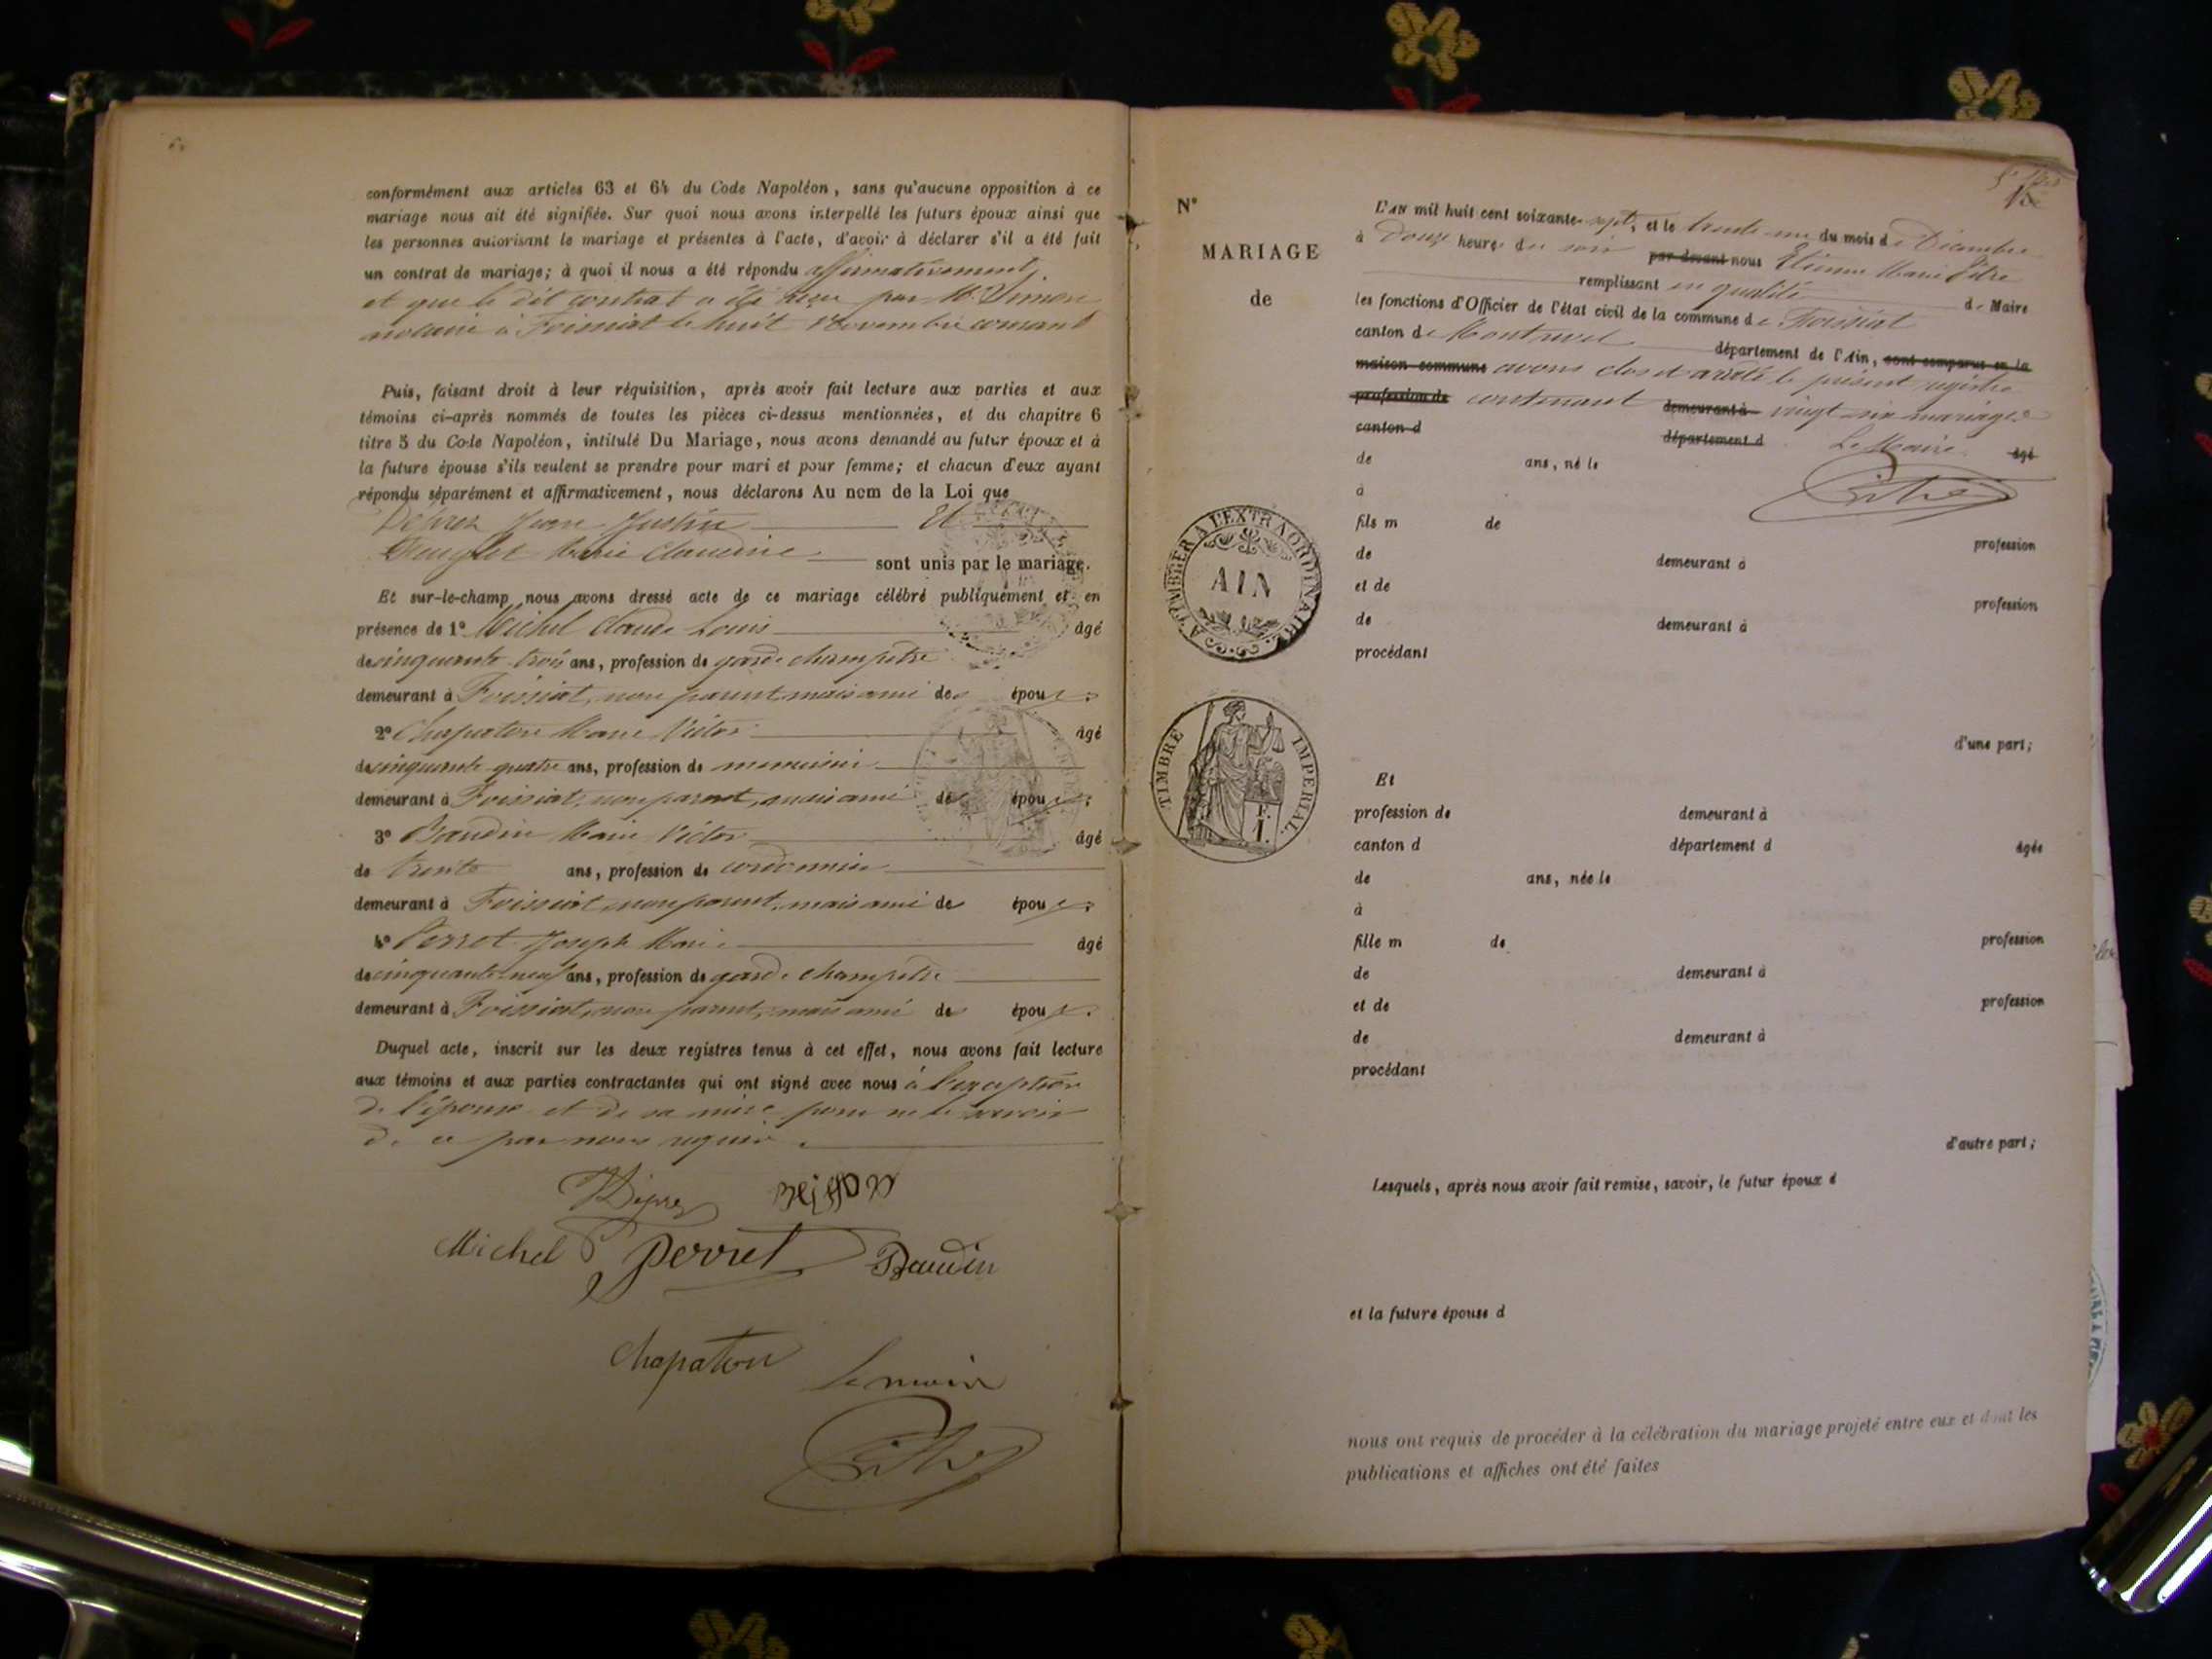 conformément aux articles 63 et 64 du Code Napoléon, sans qu'aucune opposition à ce
mariage nous ait été signifiée. Sur quoi nous avons interpellé les futurs époux ainsi que
les personnes autorisant le mariage et présentes à l'acte, d'avoir à déclarer s'il a été fait
un contrat de mariage; à quoi il nous a été répondu affirmativement,
et que le dit contrat a été reçu par Me Simon
notaire à Foissiat le huit Novembre courant
Puis, faisant droit à leur réquisition, après avoir fait lecture aux parties et aux
témoins ci-après nommés de toutes les pièces ci-dessus mentionnées, et du chapitre 6
titre 5 du Code Napoléon, intitulé Du Mariage, nous avons demandé au futur époux et à
la future épouse s'ils veulent se prendre pour mari et pour femme; et chacun d'eux ayant
répondu séparément et affirmativement, nous déclarons Au nom de la Loi que
Justin Et
Marie Claudine sont unis par le mariage.
Et sur-le-champ nous avons dressé acte de ce mariage célébré publiquement et en
présence de 1° Michel Claude Louis âgé
de cinquante trois ans, profession de garde champêtre
demeurant à Foissiat, non parent, mais ami des époux;
2° Chapaton Marie Victor âgé
de cinquante quatre ans, profession de menuisier
demeurant à Foissiat, non parent, mais ami des époux;
3° Baudin Marie Victor âgé
de trente ans, profession de cordonnier
demeurant à Foissiat, non parent, mais ami des époux;
4° Perret Joseph Marie âgé
de cinquante-neuf ans, profession de garde champêtre
demeurant à Foissiat, non parent, mais ami des époux.
Duquel acte, inscrit sur les deux registres tenus à cet effet, nous avons fait lecture
aux témoins et aux parties contractantes qui ont signé avec nous à l'exception
de l'épouse et de sa mère pour ne le savoir
de ce par nous requis.
Michel Perret Baudin
Chapaton Le maire
Pitre
N°
MARIAGE
de
A TIMBRER A L'EXTRAORDINAIRE
AIN
TIMBRE IMPERIAL
L'AN mil huit cent soixante-sept, et le trente-un du mois de Décembre
à Douze heures du soir par devant nous Etienne Marie Pitre
remplissant en qualité de Maire
les fonctions d'Officier de l'état civil de la commune de Foissiat
canton de Montrevel département de l'Ain, sont comparus en la
maison commune avons clos et arrêté le présent registre
profession de contenant demeurant à vingt six mariages
canton d département d Le Maire âgé
de ans, né le
à Pitre
fils m de
profession
de demeurant à
et de
profession
de demeurant à
procédant
d'une part;
Et
profession de demeurant à
canton d département d âgée
de ans, née le
à
fille m de profession
de demeurant à
et de profession
de demeurant à
procédant
d'autre part;
Lesquels, après nous avoir fait remise, savoir, le futur époux d
et la future épouse d
nous ont requis de procéder à la célébration du mariage projeté entre eux et dont les
publications et affiches ont été faites